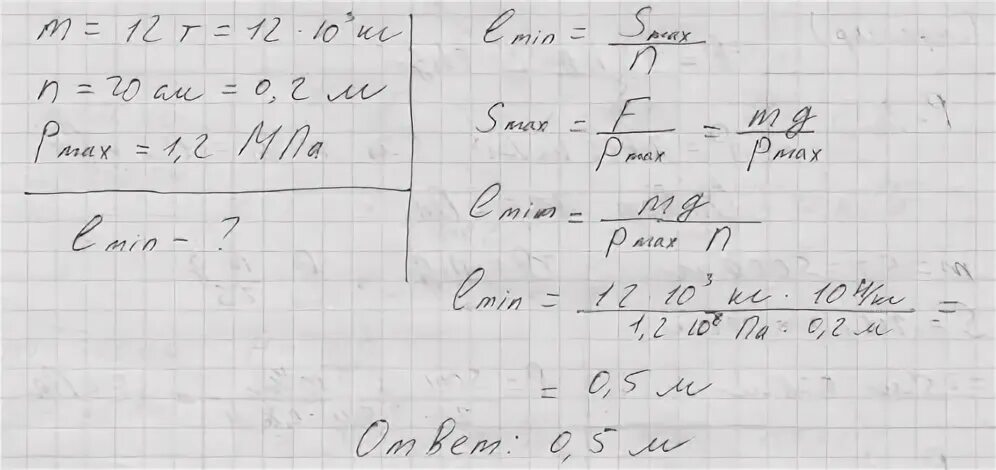 m = 12 т = 12 · 10³ кг
n = 20 см = 0,2 м
Pmax = 1,2 МПа
lmin - ?
lmin = Smax / n
Smax = F / Pmax = mg / Pmax
lmin = mg / Pmax n
lmin = 12 · 10³ кг · 10 Н/кг / 1,2 · 10⁶ Па · 0,2 м =
= 0,5 м
Ответ: 0,5 м